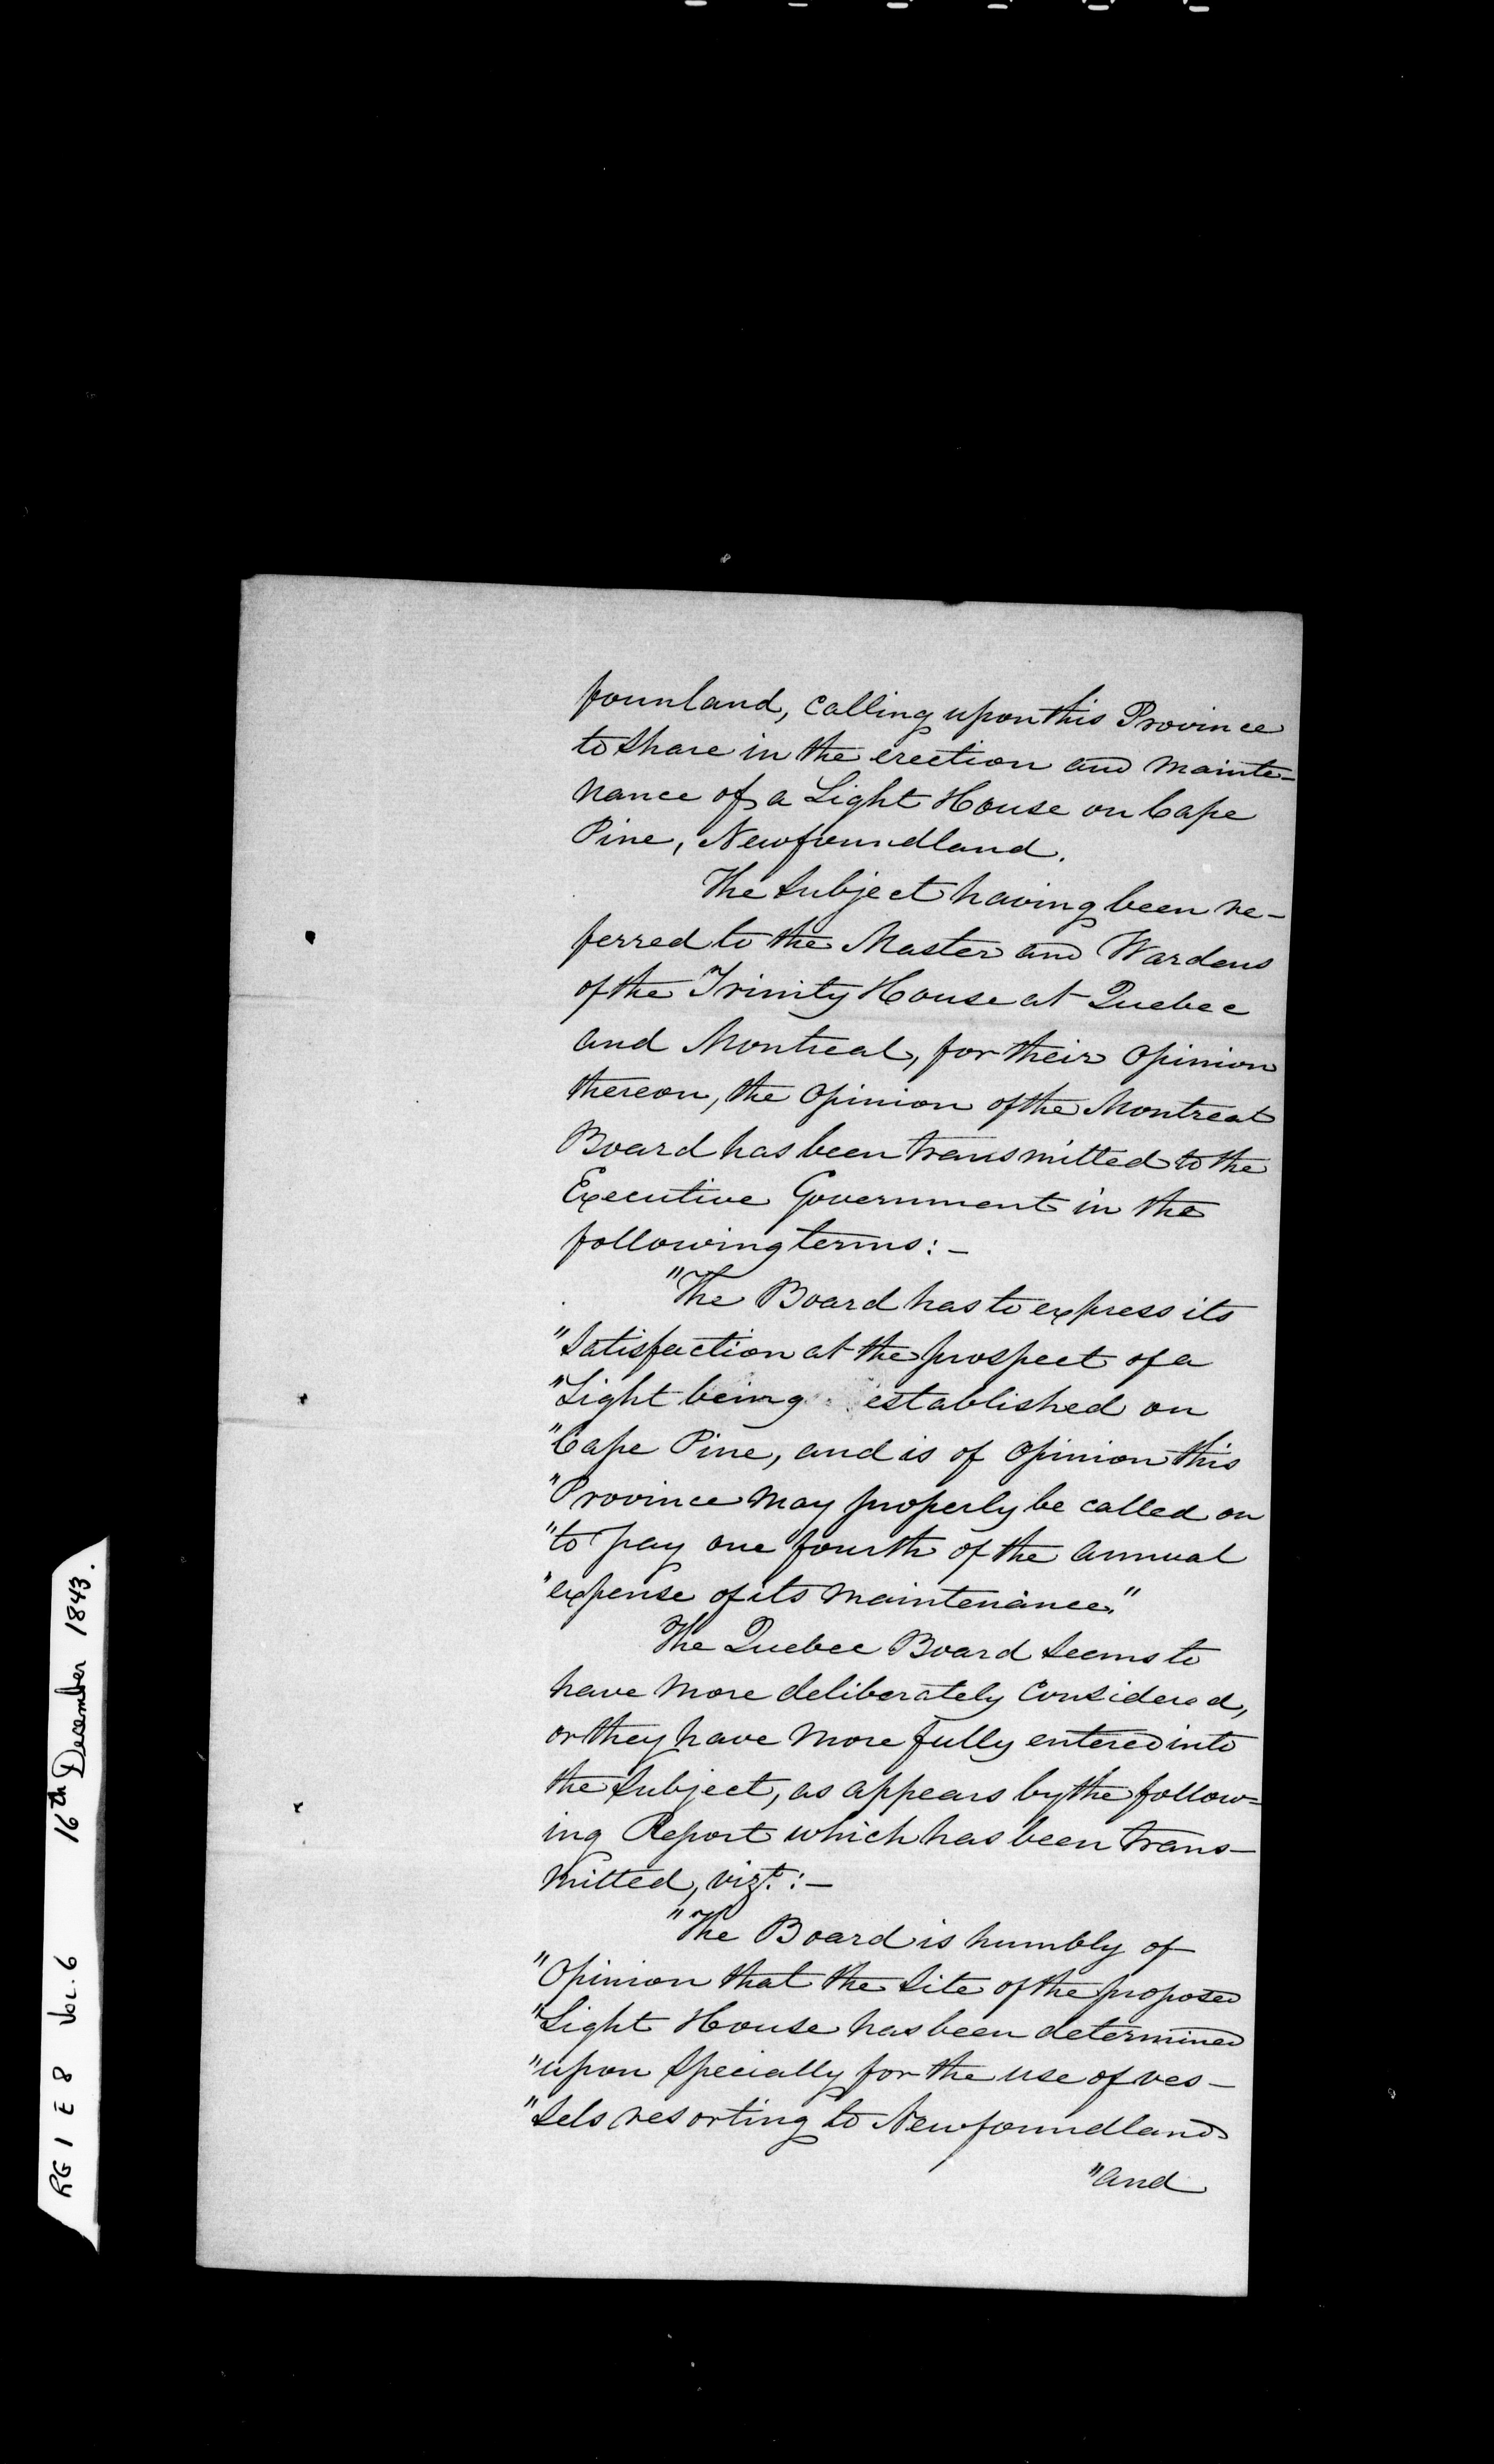 founland, calling upon this Province
to share in the erection and mainte-
nance of a Light House on Cape
Pine, Newfoundland.
The subject having been re-
ferred to the Master and Wardens
of the Trinity House at Quebec
and Montreal, for their opinion
thereon, the opinion of the Montreal
Board has been transmitted to the
Executive Government in the
following terms:-
"The Board has to express its
"satisfaction at the prospect of a
"Light being established on
"Cape Pine, and is of opinion this
"Province may properly be called on
"to pay one fourth of the annual
"expense of its maintenance."
The Quebec Board seems to
have more deliberately considered,
or they have more fully entered into
the subject, as appears by the follow=
ing Report which has been trans-
mitted, vizt:-
"The Board is humbly of
"opinion that the site of the proposed
"Light House has been determined
"upon specially for the use of ves-
"sels resorting to Newfoundland
"and
RG 1 E 8 Vol. 6 16th December 1843.